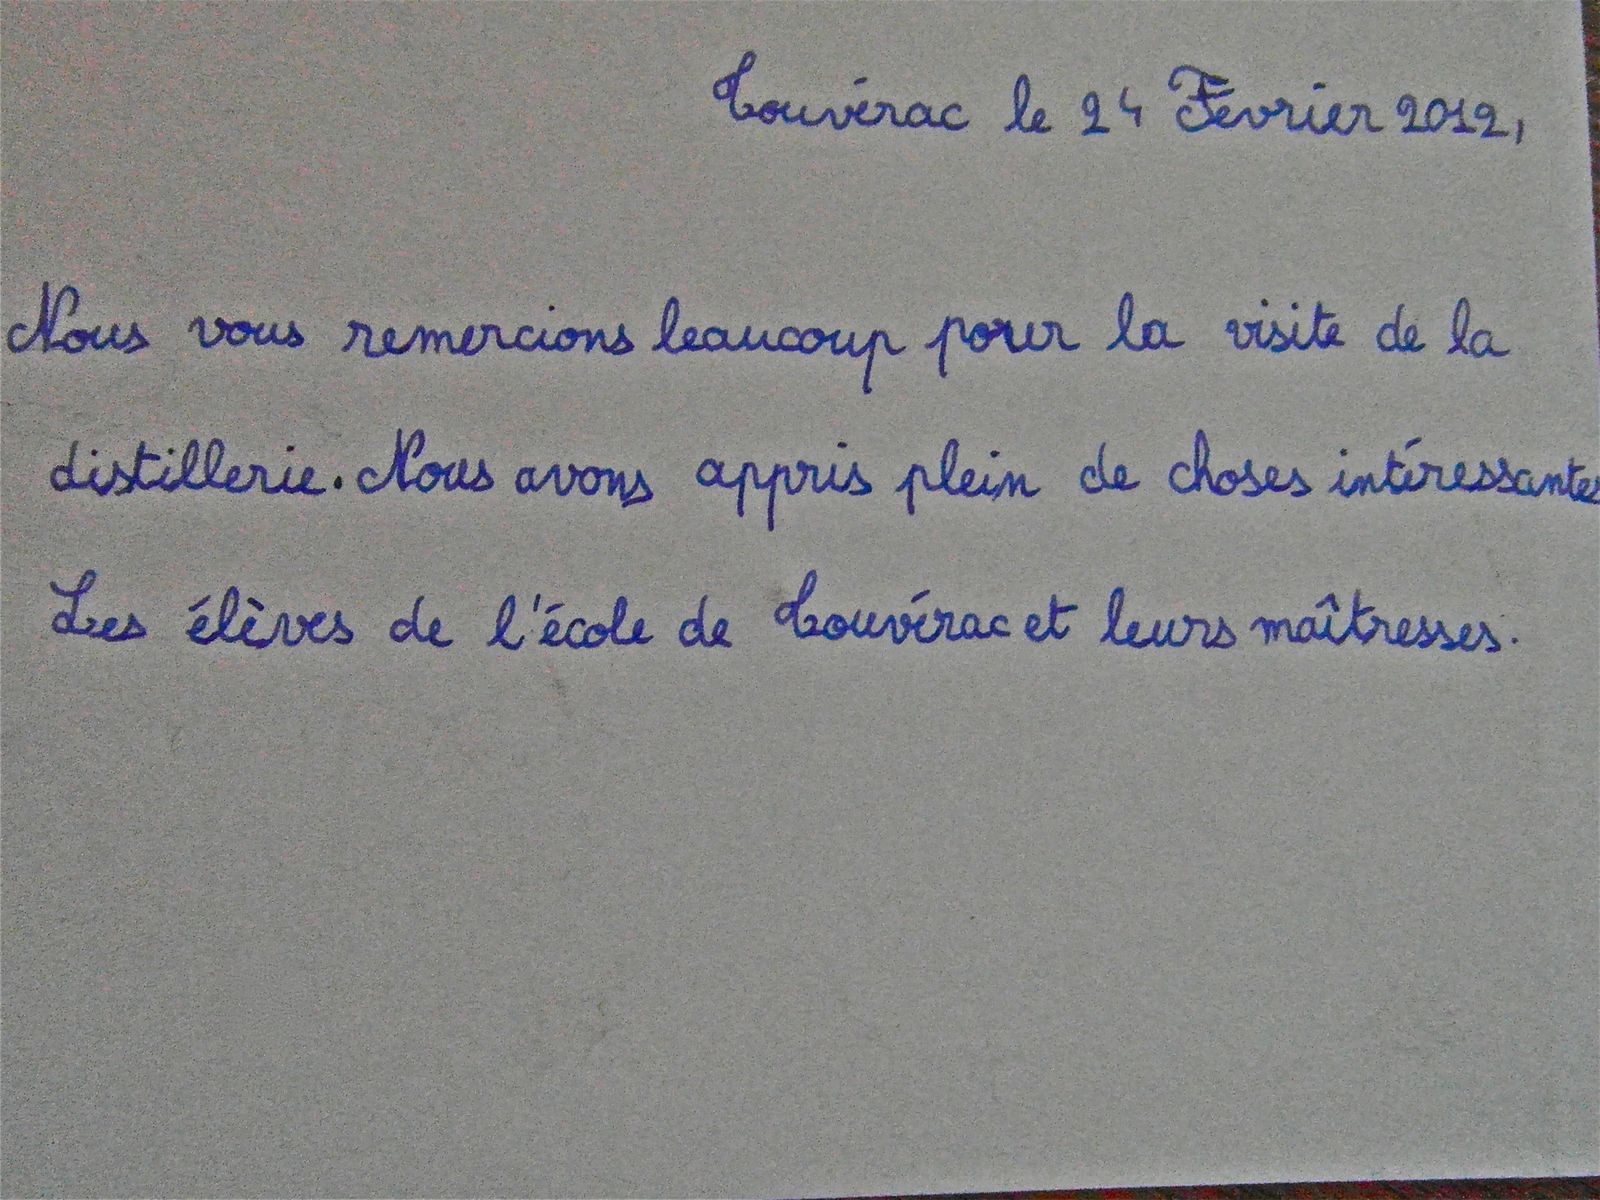 Touvérac le 24 Février 2012,
Nous vous remercions beaucoup pour la visite de la
distillerie. Nous avons appris plein de choses intéressantes
Les élèves de l'école de Touvérac et leurs maîtresses.